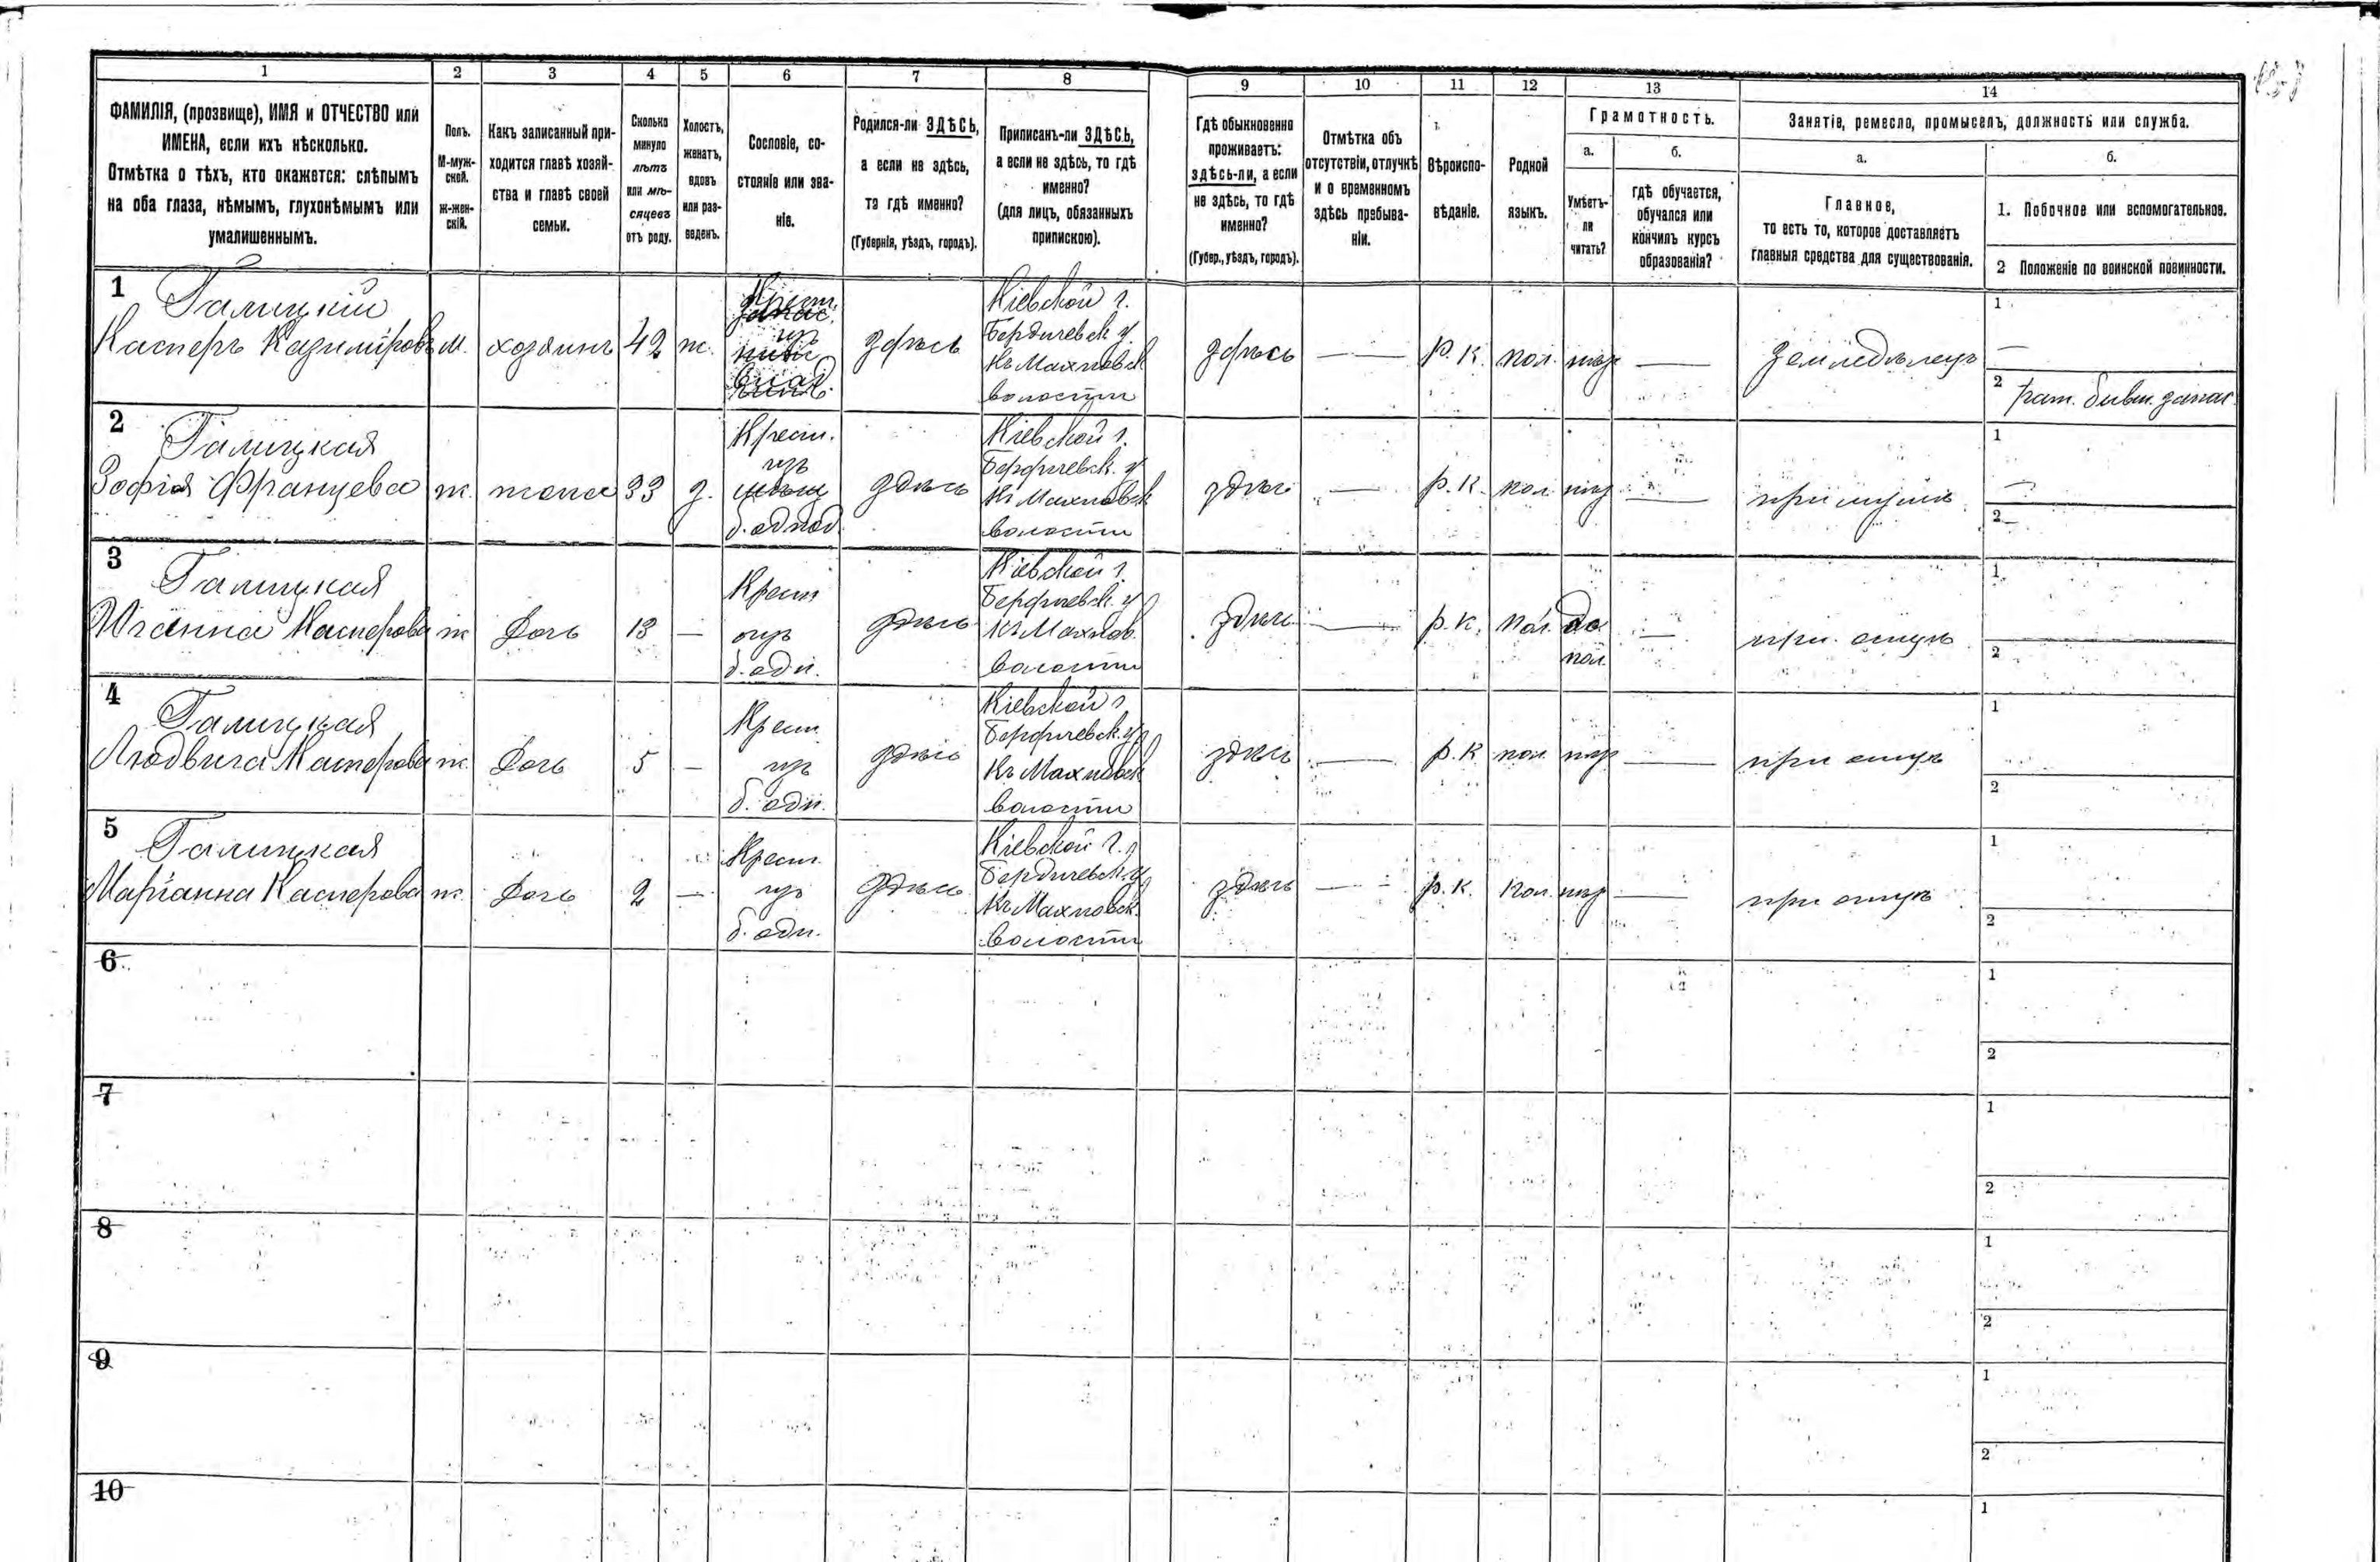 1 2 3 4 5 6 7 8 9 10 11 12 13 14
ФАМИЛІЯ, (прозвище), ИМЯ и ОТЧЕСТВО или
ИМЕНА, если ихъ нѣсколько.
Отмѣтка о тѣхъ, кто окажется: слѣпымъ
на оба глаза, нѣмымъ, глухонѣмымъ или
умалишеннымъ.
Полъ.
М-муж-
ской.
Ж-жен-
скій.
Какъ записанный при-
ходится главѣ хозяй-
ства и главѣ своей
семьи.
Сколько
минуло
лѣтъ
или мѣ-
сяцевъ
отъ роду.
Холостъ,
женатъ,
вдовъ
или раз-
веденъ.
Сословіе, со-
стояніе или зва-
ніе.
Родился-ли ЗДѢСЬ,
а если не здѣсь,
то гдѣ именно?
(Губернія, уѣздъ, городъ).
Приписанъ-ли ЗДѢСЬ,
а если не здѣсь, то гдѣ
именно?
(для лицъ, обязанныхъ
припискою).
Гдѣ обыкновенно
проживаетъ:
здѣсь-ли, а если
не здѣсь, то гдѣ
именно?
(Губер., уѣздъ, городъ).
Отмѣтка объ
отсутствіи, отлучкѣ
и о временномъ
здѣсь пребыва-
ніи.
Вѣроиспо-
вѣданіе.
Родной
языкъ.
Грамотность.
а.
Умѣетъ-
ли
читать?
б.
гдѣ обучается,
обучался или
кончилъ курсъ
образованія?
Занятіе, ремесло, промыселъ, должность или служба.
а.
Главное,
то есть то, которое доставляетъ
главныя средства для существованія.
б.
1. Побочное или вспомогательное.
2 Положеніе по воинской повинности.
1
Галицкій
Касперъ Казиміровъ
м.
хозяинъ
42
ж.
Крест.
изъ
здѣсь
Кіевской г.
Бердичевск у.
Къ Махновск
волости
здѣсь
— —
р. к.
пол.
нѣт
—
земледѣлецъ
1
—
2
рат. бывш. запас.
2
Галицкая
Зофія Францева
ж.
жена
33
з.
Крест.
изъ
б. однод
здѣсь
Кіевской г.
Бердичевск. у
Къ Махновск
волости
здѣсь
—
р. к.
пол.
нѣт
—
при мужѣ
1
—
2
3
Галицкая
Юзанна Касперова
ж
дочь
13
—
Крест
изъ
б. одн.
здѣсь
Кіевской г.
Бердичевск. у
Къ Махнов.
волости
здѣсь
—
р. к.
пол.
да
пол.
—
при отцѣ
1
2
4
Галицкая
Людвига Касперова
ж.
дочь
5
—
Крест
изъ
б. одн.
здѣсь
Кіевской г
Бердичевск. у
Къ Махновск
волости
здѣсь
—
р. к
пол
нѣт
—
при отцѣ
1
2
5
Галицкая
Маріанна Касперова
ж.
дочь
2
—
Крест.
изъ
б. одн.
здѣсь
Кіевской г.
Бердичевск. у
Къ Махновск.
волости
здѣсь
— -
р. к.
пол.
нѣт
—
при отцѣ
1
2
6
1
2
7
1
2
8
1
2
9
1
2
10
1